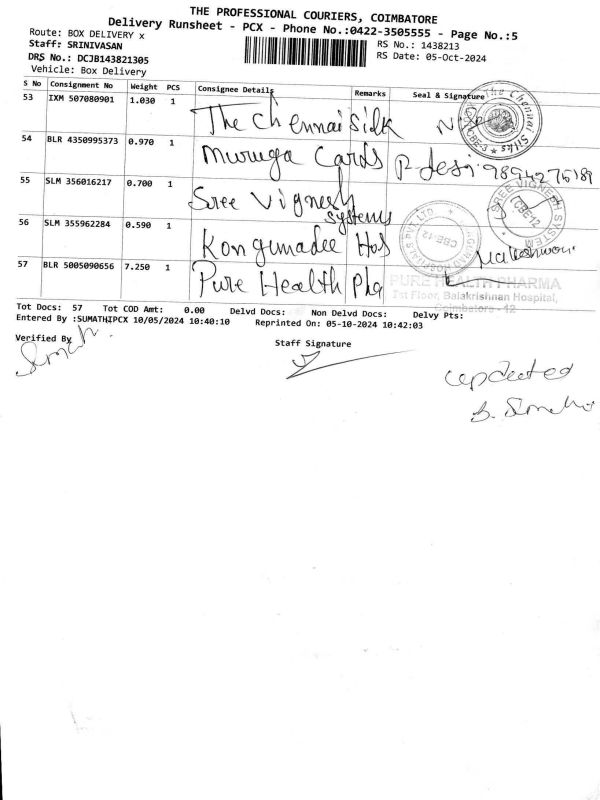 THE PROFESSIONAL COURIERS, COIMBATORE
Delivery Runsheet - PCX - Phone No.:0422-3505555 - Page No.:5
Route: BOX DELIVERY x
RS No.: 1438213
Staff: SRINIVASAN
RS Date: 05-Oct-2024
DRS No.: DCJB143821305
Vehicle: Box Delivery
S No Consignment No Weight PCS Consignee Details Remarks Seal & Signature
53 IXM 507080901 1.030 1 The Chennai Silk
The Chennai Silks
54 BLR 4350995373 0.970 1 Muruga Cards
55 SLM 356016217 0.700 1 Sree Vignesh Systems
SREE VIGNESH SYSTEM CBE-12
56 SLM 355962284 0.590 1 Kongunadee Hos
CBE-12
57 BLR 5005090656 7.250 1 Pure Health Pha
PURE HEALTH PHARMA
1st Floor, Balakrishnan Hospital,
Coimbatore - 12
Tot Docs: 57 Tot COD Amt: 0.00 Delvd Docs: Non Delvd Docs: Delvy Pts:
Entered By :SUMATHIPCX 10/05/2024 10:40:10 Reprinted On: 05-10-2024 10:42:03
Verified By
Staff Signature
updated